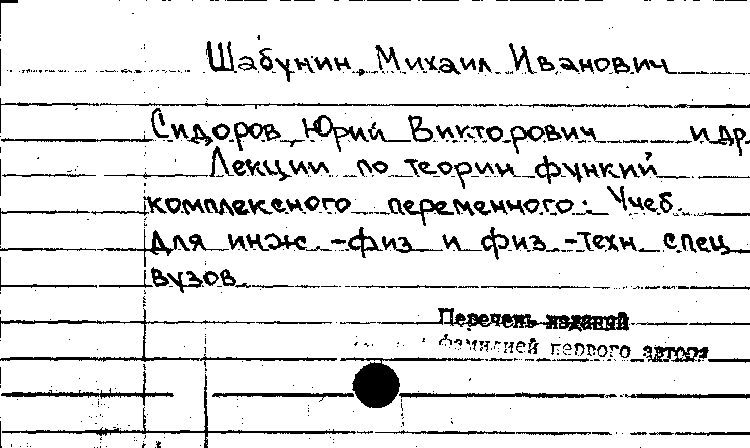 Шабунин, Михаил Иванович
Сидоров, Юрий Викторович и др
Лекции по теории функий
комплексного переменного: Учеб.
для инж.-физ и физ.-техн спец
вузов.
Перечень изданий
фамилией первого автора